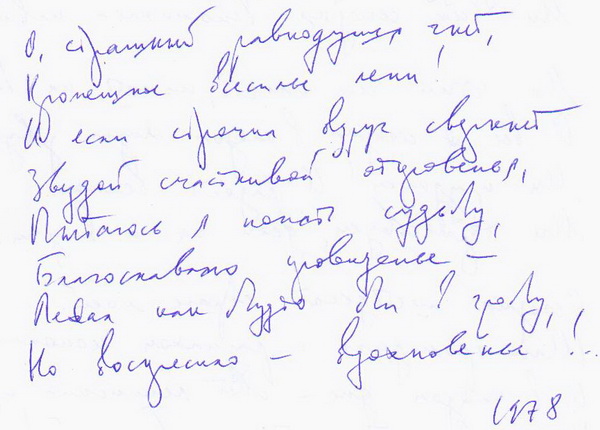 О, страшный равнодушья гнёт,
Кромешное всесилье лени!
И если строчка вдруг сверкнёт
Звездой счастливой откровенья,
Пытаюсь я понять судьбу,
Благославляю провиденье –
Лежал как будто бы в гробу,
Но воскресило – вдохновенье!..
1978